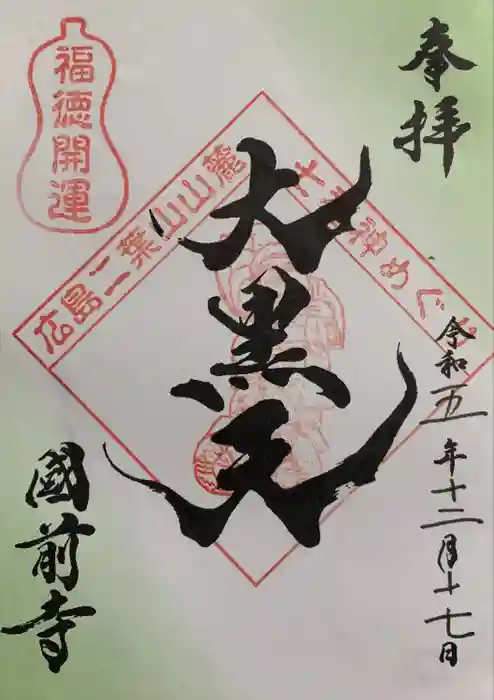 奉拝
福徳開運
広島二葉山山麓
七福神めぐり
大黒天
令和五年十二月十七日
國前寺